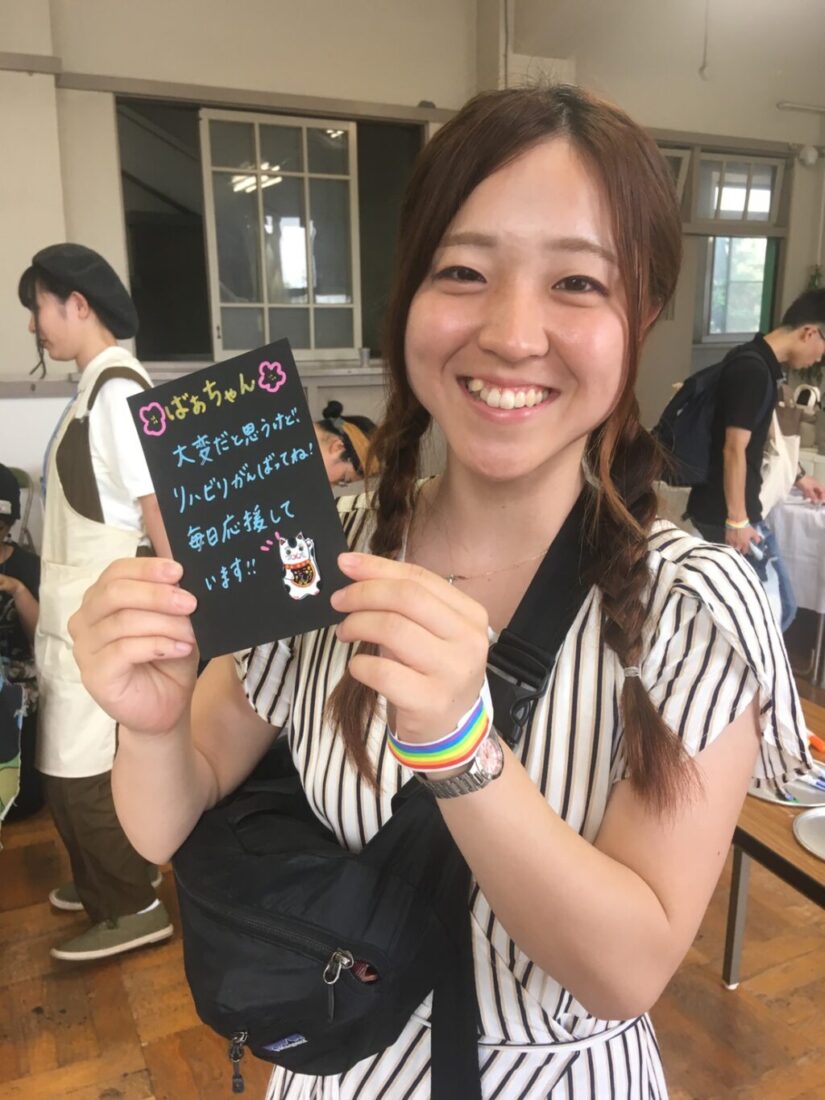 ばぁちゃん
大変だと思うけど、
リハビリがんばってね!
毎日応援して
います!!